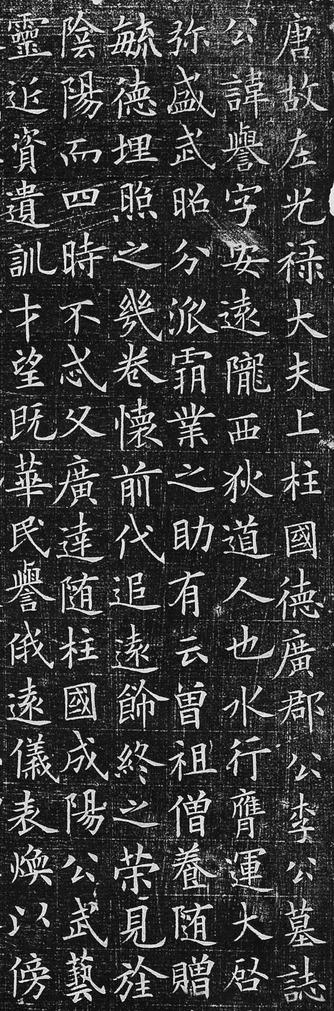 唐故左光禄大夫上柱國德廣郡公李公墓誌
公諱譽字安遠隴西狄道人也水行膺運大啓
弥盛武昭分派霸業之助有云曾祖僧養随贈
毓德埋照之幾卷懷前代追遠飾終之荣見旌
陰陽而四時不忒父廣達随柱國成陽公武藝
靈近資遺訓才望既華民譽俄遠儀表煥以傍